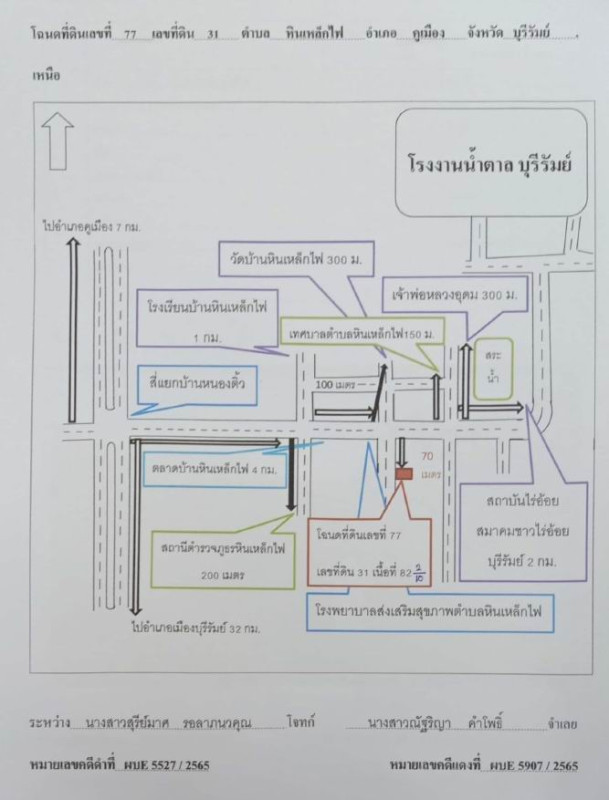 โฉนดที่ดินเลขที่ 77 เลขที่ดิน 31 ตำบล หินเหล็กไฟ อำเภอ คูเมือง จังหวัด บุรีรัมย์
เหนือ
โรงงานน้ำตาล บุรีรัมย์
ไปอำเภอคูเมือง 7 กม.
วัดบ้านหินเหล็กไฟ 300 ม.
เจ้าพ่อหลวงอุดม 300 ม.
โรงเรียนบ้านหินเหล็กไฟ
1 กม.
เทศบาลตำบลหินเหล็กไฟ150 ม.
สระ
น้ำ
สี่แยกบ้านหนองติ้ว
100 เมตร
ตลาดบ้านหินเหล็กไฟ 4 กม.
70
เมตร
สถาบันไร่อ้อย
สมาคมชาวไร่อ้อย
บุรีรัมย์ 2 กม.
สถานีตำรวจภูธรหินเหล็กไฟ
200 เมตร
โฉนดที่ดินเลขที่ 77
เลขที่ดิน 31 เนื้อที่ 82
โรงพยาบาลส่งเสริมสุขภาพตำบลหินเหล็กไฟ
ไปอำเภอเมืองบุรีรัมย์ 32 กม.
ระหว่าง นางสาวสุรีย์มาศ รอลาภนวคุณ โจทก์ นางสาวณัฐริญา คำโพธิ์ จำเลย
หมายเลขคดีดำที่ ผบE 5527 / 2565 หมายเลขคดีแดงที่ ผบE 5907 / 2565